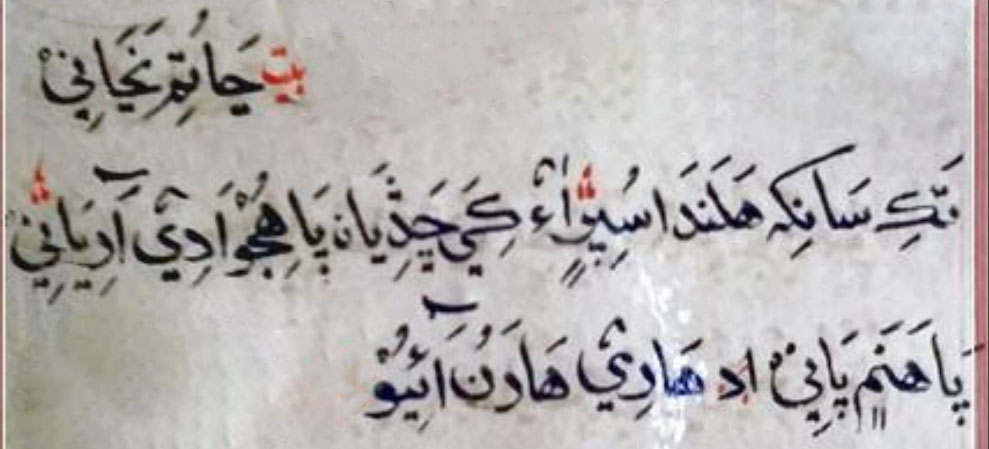 بيت جَاتِمُ نَجَانِيْ
تَکِ سَانکِہ هَلَندَا سُپِرِيْن کِيَ جَڏِيَان پَاهِجُوْ اَدِيْ آرِيَانِيْ
پَاهَنَم پَانِيْ هَارِيْ هَارَنُ آئِيُوْ